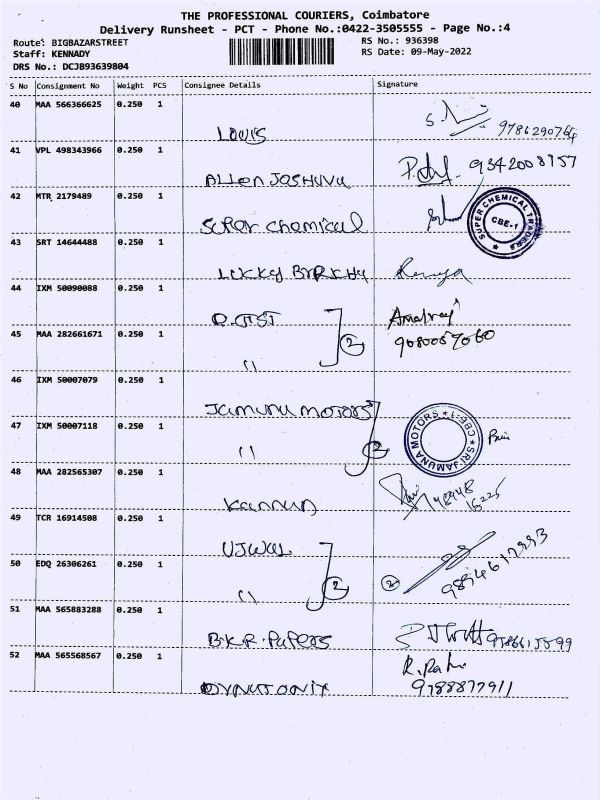 THE PROFESSIONAL COURIERS, Coimbatore
Delivery Runsheet - PCT - Phone No.:0422-3505555 - Page No.:4
Route: BIGBAZARSTREET
RS No.: 936398
Staff: KENNADY
RS Date: 09-May-2022
DRS No.: DCJB93639804
S No Consignment No Weight PCS Consignee Details Signature
40 MAA 566366625 0.250 1
Louis
9786290764
41 VPL 498343966 0.250 1
Allen Joshuva
9342008757
42 MTR 2179489 0.250 1
Super chemical
SUPER CHEMICAL TRADERS CBE-1
43 SRT 14644488 0.250 1
Lucky
44 IXM 50090088 0.250 1
Amalraj
9080057060
45 MAA 282661671 0.250 1
2
"
46 IXM 50007079 0.250 1
Jamuna motors
47 IXM 50007118 0.250 1
"
2
SRI JAMUNA MOTORS CBE-1
48 MAA 282565307 0.250 1
Kannan
49 TCR 16914508 0.250 1
UJWAL
50 EDQ 26306261 0.250 1
"
2
2
51 MAA 565883288 0.250 1
B.K.R. Papers
52 MAA 565568567 0.250 1
9788877911